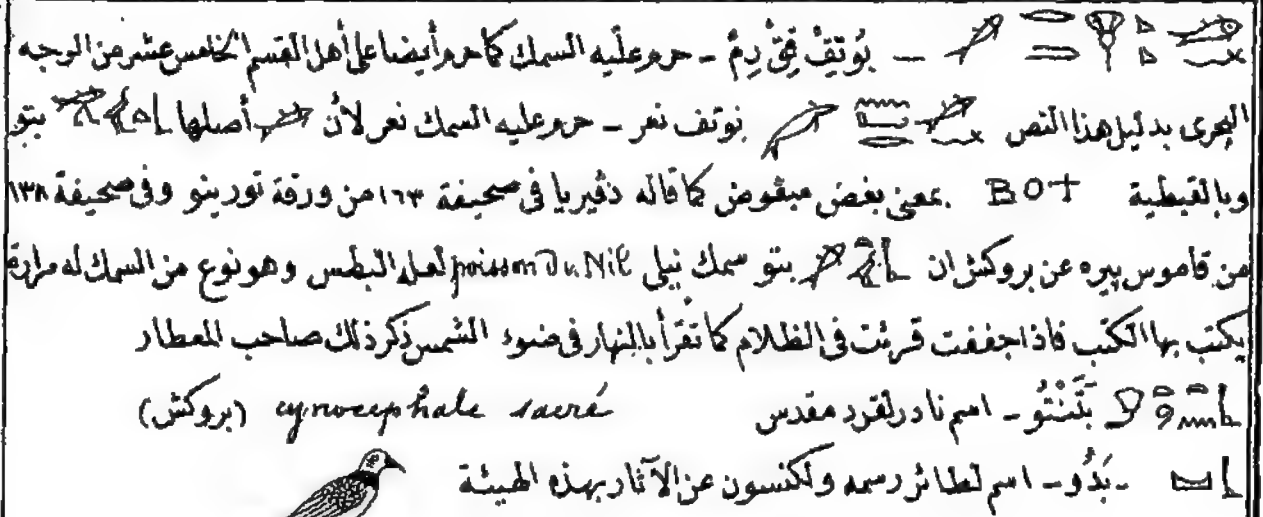 — بُوتِفْ فِقْ رِمْ - حرم عليه السمك كما حرم أيضا على أهل القسم الخامس عشر من الوجه
البحرى بدليل هذا النص نوتف نعر - حرم عليه السمك نعر لأن أصلها بتو
وبالقبطية BOT بمعنى بغض مبغوض كما قاله دڤيريا فى صحيفة ١٦٣ من ورقة تورينو وفى صحيفة ١٣٨
من قاموس پيره عن بروكش ان بتو سمك نيلى poisson du Nil لعله البطس وهو نوع من السمك له مرارة
يكتب بها الكتب فاذا جففت قرئت فى الظلام كما تقرأ بالنهار فى ضوء الشمس ذكر ذلك صاحب المعطار
بَتَنْتُو - اسم نادر لقرد مقدس cynocephale sacré (بروكش)
- بَدُو - اسم لطائر رسمه ولكنسون عن الآثار بهذه الهيئة